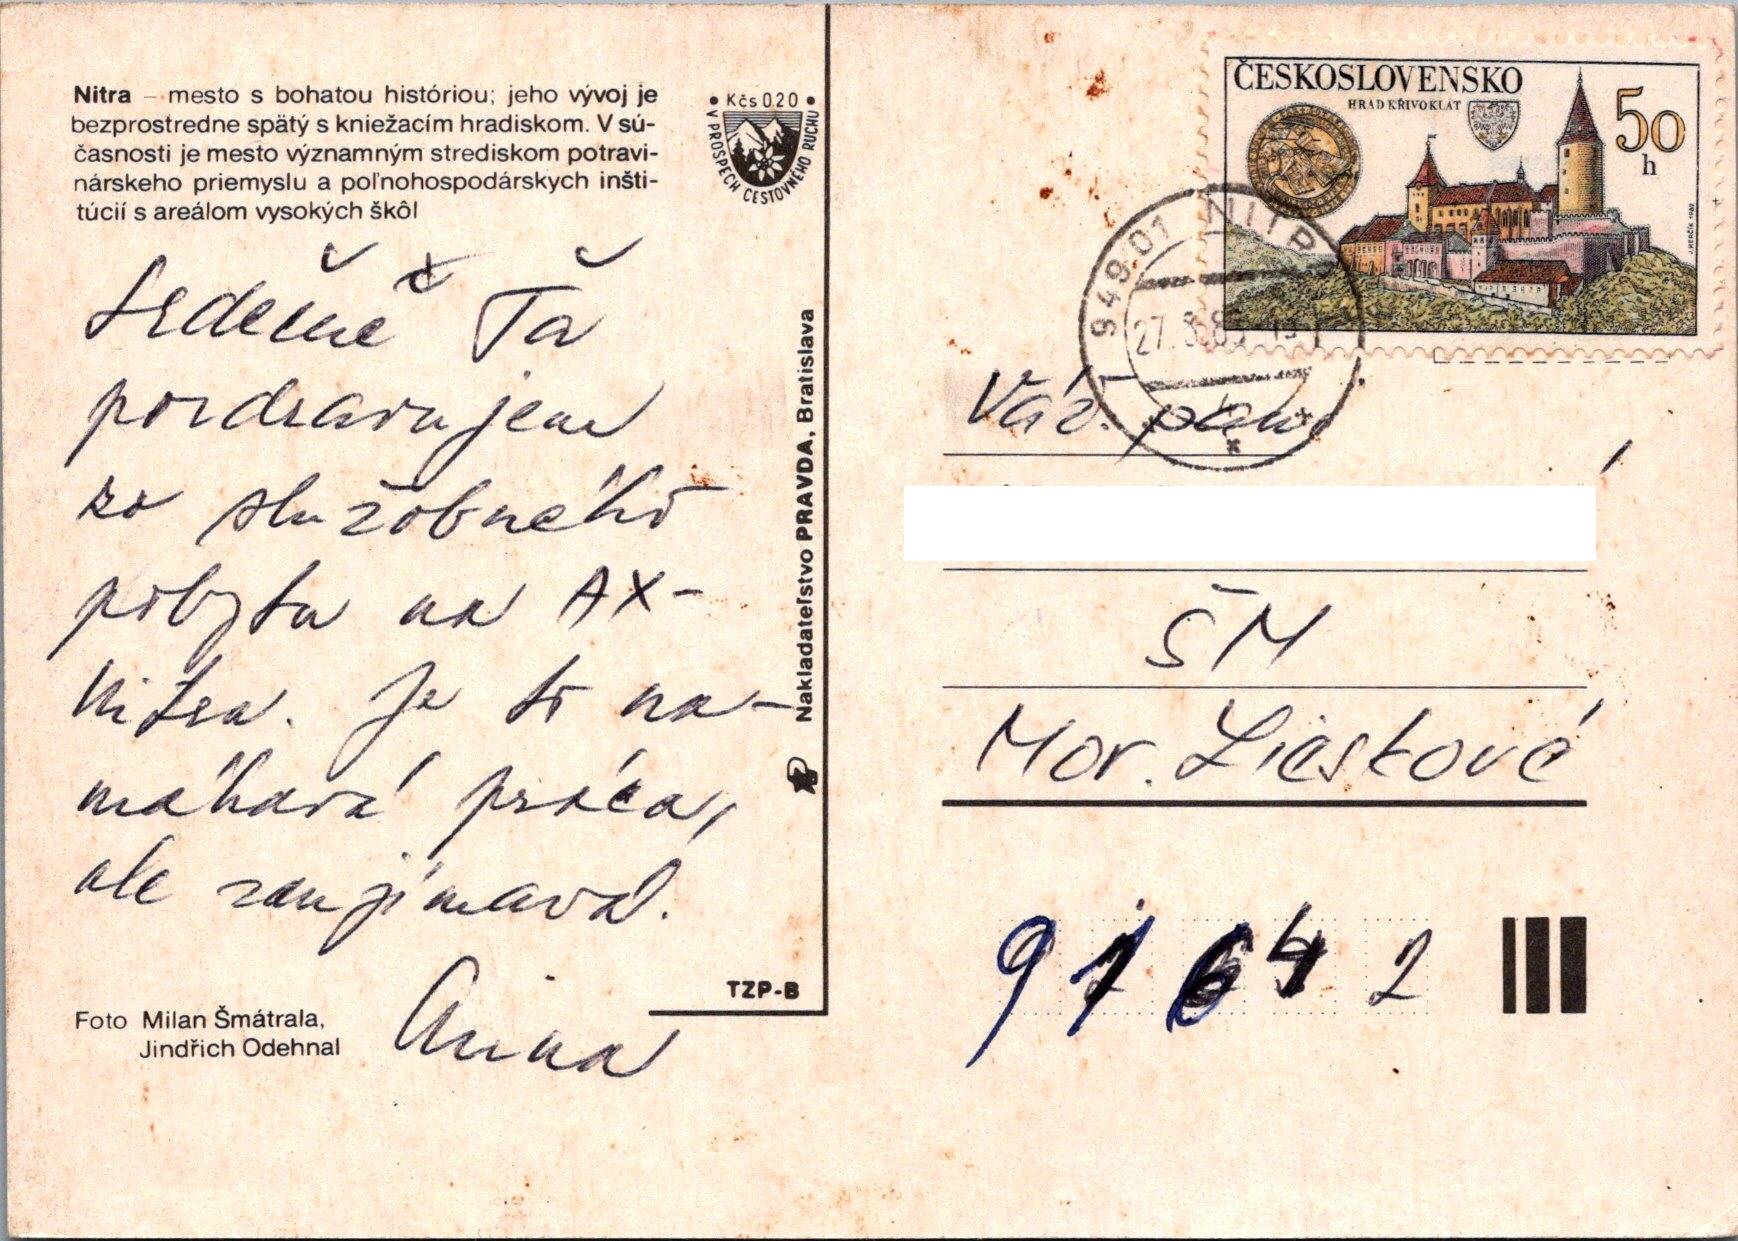 Nitra – mesto s bohatou históriou; jeho vývoj je
bezprostredne spätý s kniežacím hradiskom. V sú-
časnosti je mesto významným strediskom potravi-
nárskeho priemyslu a poľnohospodárskych inšti-
túcií s areálom vysokých škôl
• Kčs 0.20 •
V PROSPECH CESTOVNÉHO RUCHU
Srdečne Ťa
pozdravujem
zo služobného
pobytu na AX-
Nitra. Je to na-
máhavá práca,
ale zaujímavá.
Anina
Foto Milan Šmátrala,
Jindřich Odehnal
TZP-B
Nakladateľstvo PRAVDA, Bratislava
ČESKOSLOVENSKO
HRAD KŘIVOKLÁT
50
h
J. HERČÍK 1982
949 01 NITRA
Váž. pán
ŠM
Mor. Lieskové
91642